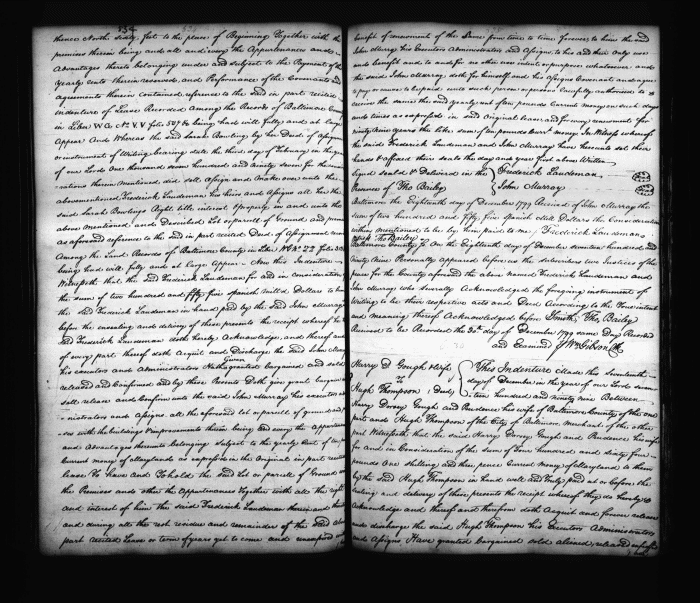 334
thence North sixty feet to the place of Beginning Together with the
premises therein being and all and every the Appurtenances and
Advantages thereto belonging under and subject to the Payment of the
Yearly rents therein reserved and Performance of the Covenants and
agreements therein contained reference to the said in part recited
Indenture of Lease Recorded Among the Records of Baltimore County
in Liber W G No. V V folio 547 & being had will fully and at large
Appear And Whereas the said Sarah Bowling by her Deed of Assign
or instrument of Writing bearing date the third day of February in the year
of our Lord One thousand seven hundred and ninety seven for the consi
-rations therein mentioned did sell Assign and make over unto the
abovementioned Frederick Laudeman his heirs and Assigns all her the
said Sarah Bowlings Right title interest property in and unto the
above mentioned and Described Lot or parcell of Ground and premi
as aforesaid reference to the said in part recited Deed of Assignment
Among the Land Records of Baltimore County in Liber WG No ZZ folio
being had will fully and at large Appear. Now this Indenture
Witnesseth that the said Frederick Laudeman for and in consideration
the sum of two hundred and fifty five spanish mill'd Dollars to him
the said Frederick Laudeman in hand paid by the said John Murray
before the ensealing and delivery of these presents the receipt whereof he
said Frederick Laudeman doth hereby Acknowledge, and thereof and
of every part thereof doth Acquit and Discharge the said John Murray
his executors and administrators Hath Given granted Bargained and sold
released and Confirmed and by these Presents Doth give grant bargain
sell release and Confirm unto the said John Murray his executors
-ministrators and Assigns all the aforesaid Lot or parcell of ground and
-ses with the buildings & improvements therein being and every the appurten
and Advantages thereunto belonging Subject to the yearly Rent of ten
Current money of Maryland as expressed in the Original in part recited
lease To have And To hold the said Lot or parcell of Ground
the Premises and other the Appurtenances Together with all the right
and interest of him the said Frederick Laudeman therein and thereto
and during all the rest residue and remainder of the said above
part recited Lease or term of years yet to come and unexpired and
benefit of renewment of the Same from time to time forever, to him the said
John Murray his Executors Administrators and Assigns, to his and their only use
and benefit and to and for no other use intent or purpose whatsoever, and
the said John Murray doth for himself and his Assigns Covenant and agree
to pay or cause to be paid unto such person or persons lawfully authorised to
receive the same the said yearly rent of ten pounds Current money on such days
and times as expressed in said Original lease and for every renewment for
ninety nine years the like sum of ten pounds Curr't money. In Witness whereof
the said Frederick Laudeman and John Murray have hereunto set their
hands & affixed their seals the day and year first above Written
Signed Sealed & Delivered in the Frederick Laudeman
Presence of Tho. Bailey John Murray
Baltimore the Eighteenth day of December 1799 Received of John Murray the
Sum of two hundred and fifty five Spanish mill Dollars the Consideration
within mentioned to be by him paid to me Frederick Laudeman
Test Tho. Bailey
Baltimore County Sc On the Eighteenth day of December seventeen hundred and
Ninety Nine Personally appeared before us the subscribers two Justices of the
peace for the County aforesaid the above named Frederick Laudeman and
John Murray who severally Acknowledged the foregoing instrument of
Writing to be their respective acts and Deed According to the true intent
and meaning thereof Acknowledged before Smith, Tho. Bailey
Received to be Recorded the day of December 1799 same Day Recorded
and Examined Wm Gibson Clk
Harry D Gough & Wife This Indenture Made this Seventeenth
To day of December in the year of our Lord seven
Hugh Thompson Deed teen hundred and ninety nine Between
Harry Dorsey Gough and Prudence his wife of Baltimore County of the one
part and Hugh Thompson of the City of Baltimore Merchant of the other
part Witnesseth that the said Harry Dorsey Gough and Prudence his wife
for and in Consideration of the Sum of Four hundred and Ninety four
pounds One shilling and three pence Current Money of Maryland to them
by the said Hugh Thompson in hand well and truly paid at or before the
sealing and delivery of these presents the receipt whereof they do hereby
Acknowledge and thereof and therefrom doth Acquit and forever release
and discharge the said Hugh Thompson his Executors Administrators
and Assigns Have granted bargained sold aliened released